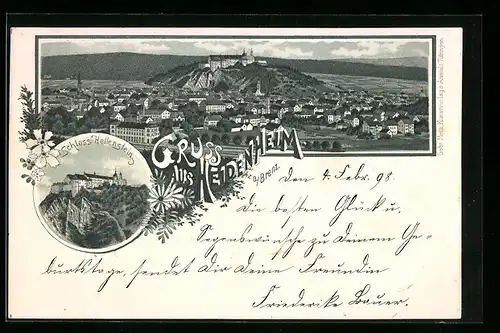 Schloss Hellenstein.
GRUSS
AUS HEIDENHEIM
a/Brenz.
den 4. Febr. 98.
Die besten Glück u.
Segenswünsche zu Deinem Ge-
burtstage, sendet Dir Deine Freundin
Friederike Bauer.